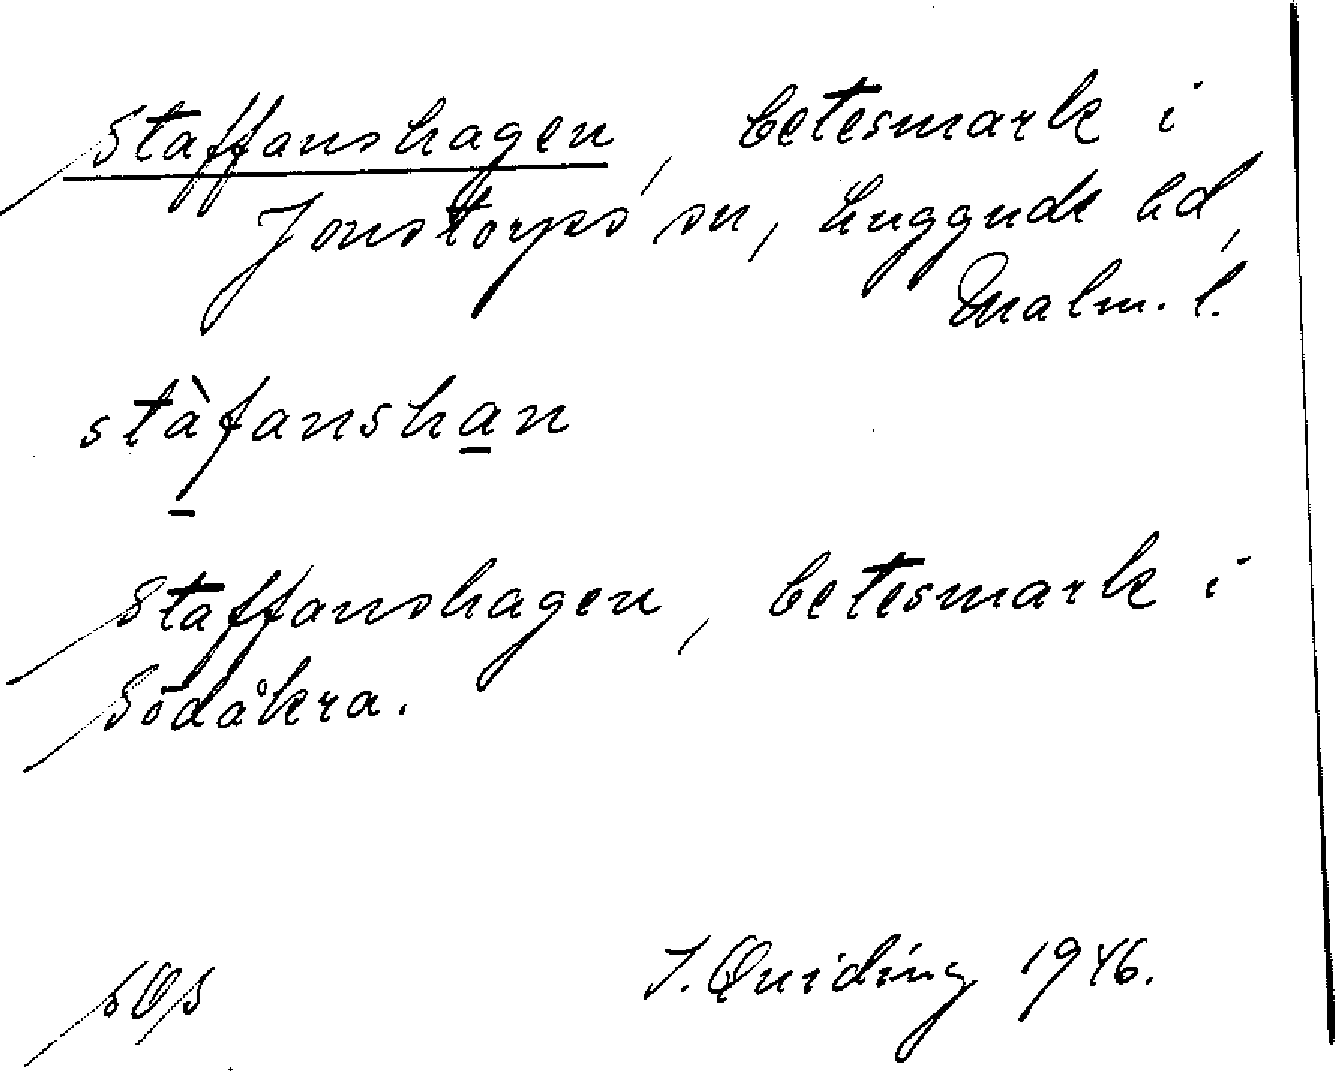 Staffanshagen, betesmark i
Jonstorps sn, Luggude hd,
Malm. l.
stàfanshan
Staffanshagen, betesmark i
Södåkra.
J. Quiding 1946.